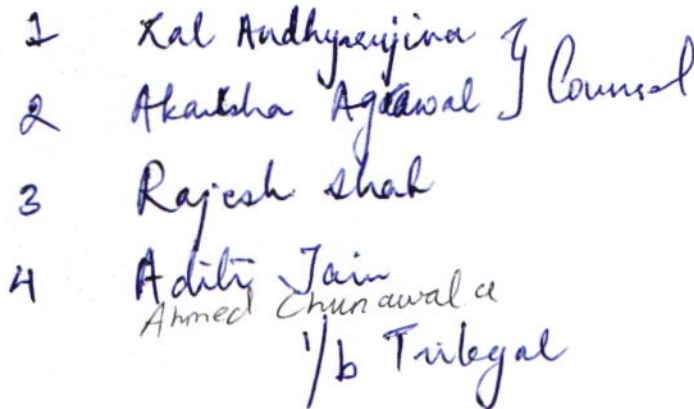 1 Zal Andhyarujina } Counsel
2 Akanksha Agrawal
3 Rajesh Shah
4 Aditi Jain
Ahmed Chunawala
i/b Trilegal